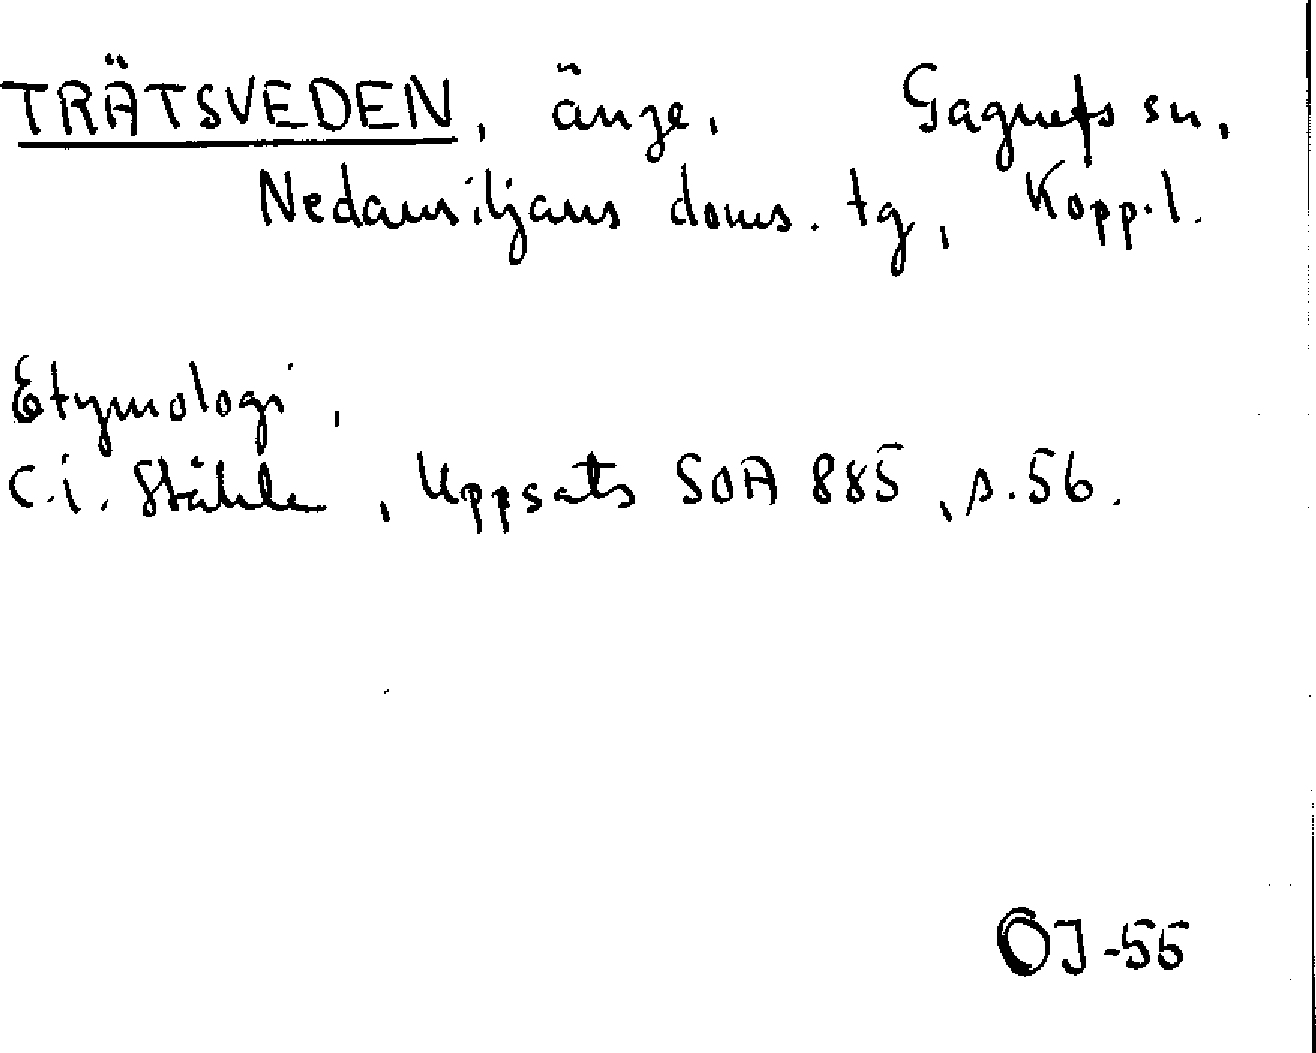 TRÄTSVEDEN, änge, Gagnefs sn,
Nedansiljans doms. tg, Kopp.l.
Etymologi,
C.I. Ståhle, Uppsats SOA 885, s.56.
OJ-55